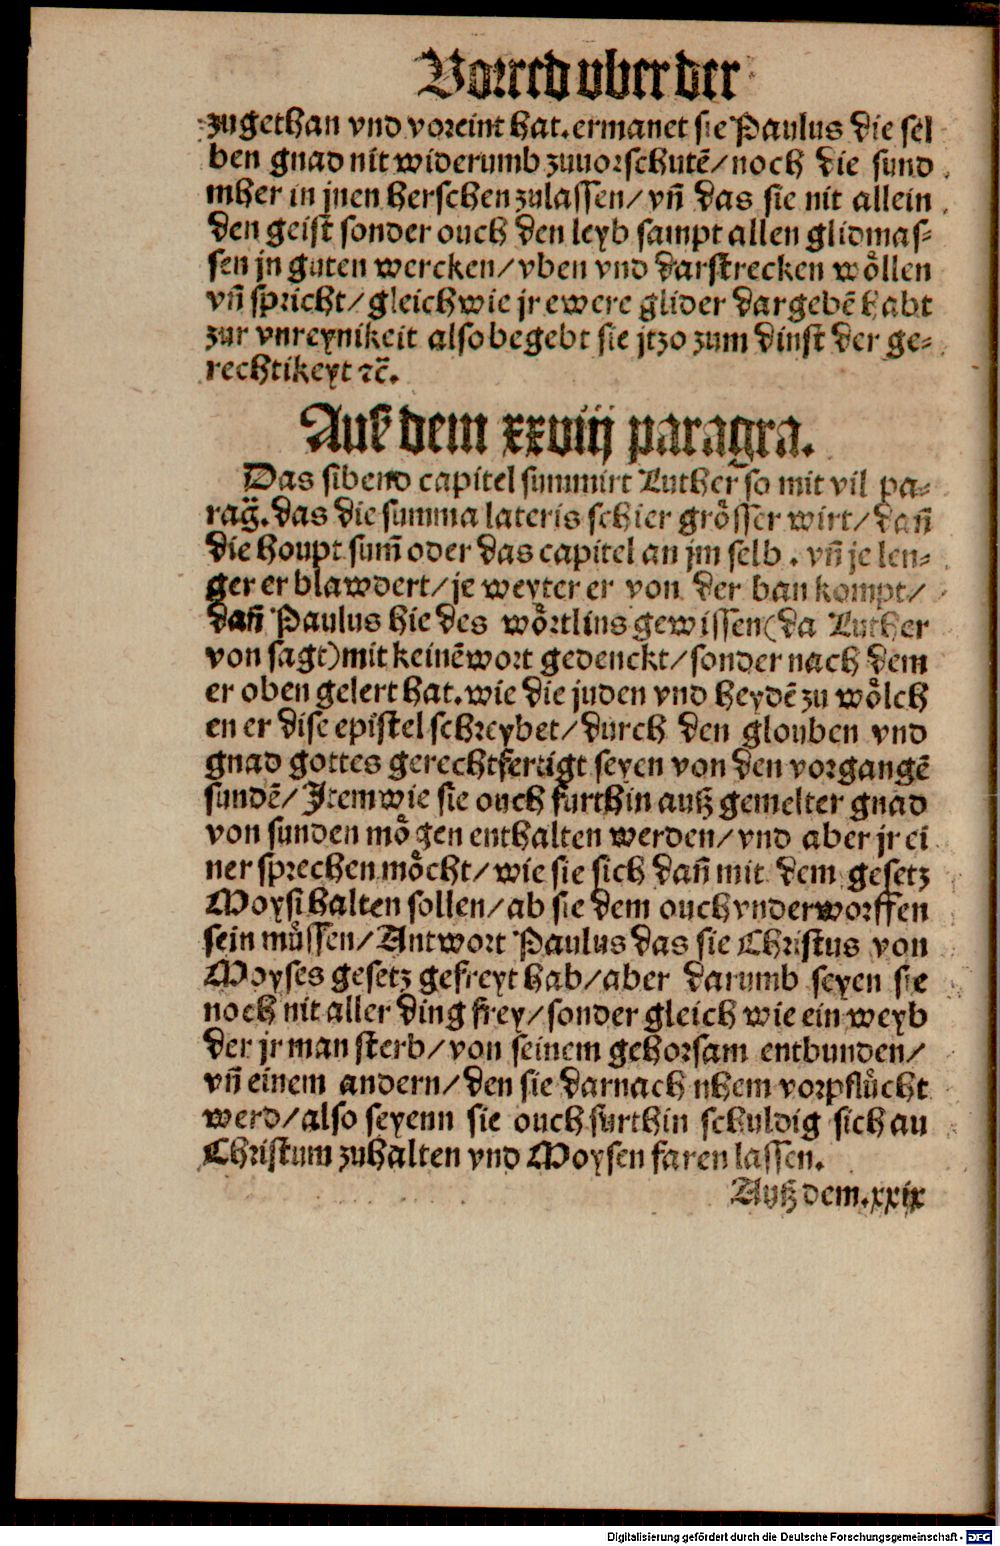 Vorred vber der
zugethan vnd voreint hat. ermanet sie Paulus die sel
ben gnad nit widerumb zuuorschutē/ noch die sund
mher in jnen herschen zulassen/ vñ das sie nit allein
den geist sonder ouch den leyb sampt allen glidmas⸗
sen jn guten wercken/ vben vnd darstrecken wöllen
vñ spricht/ gleich wie jr ewere glider dargebē habt
zur vnreynikeit also begebt sie jtzo zum dinst der ge⸗
rechtikeyt ⁊c̄.
Auß dem xxviij paragra.
Das sibend capitel summirt Luther so mit vil pa⸗
rag̃. das die summa lateris schier grösser wirt/ dañ
die houpt sum̃ oder das capitel an jm selb. vñ je len⸗
ger er blawdert/ je weyter er von der ban kompt/
dañ Paulus hie des wörtlins gewissen (da Luther
von sagt) mit keinē wort gedenckt/ sonder nach dem
er oben gelert hat. wie die juden vnd heydē zu wölch
en er dise epistel schreybet/ durch den glouben vnd
gnad gottes gerechtfertigt seyen von den vorgangē
sundē/ Item wie sie ouch furthin auß gemelter gnad
von sunden mögen enthalten werden/ vnd aber jr ei
ner sprechen möcht/ wie sie sich dañ mit dem gesetz
Moysi halten sollen/ ab sie dem ouch vnderworffen
sein müssen/ Antwort Paulus das sie Christus von
Moyses gesetz gefreyt hab/ aber darumb seyen sie
noch nit aller ding frey/ sonder gleich wie ein weyb
der jr man sterb/ von seinem gehorsam entbunden/
vñ einem andern/ den sie darnach nhem vorpflücht
werd/ also seyenn sie ouch furthin schuldig sich an
Christum zuhalten vnd Moysen faren lassen.
Auß dem. xxix
Digitalisierung gefördert durch die Deutsche Forschungsgemeinschaft - DFG